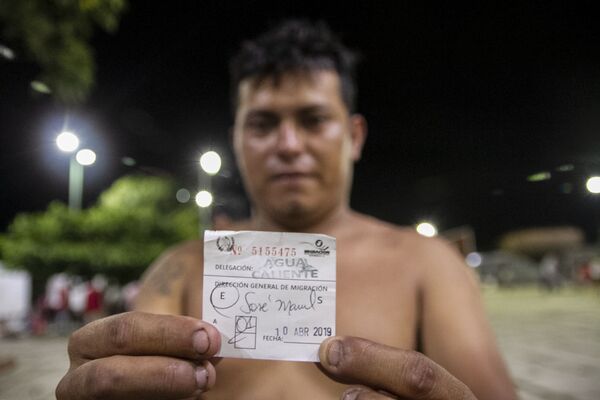 Nº 5155475
MIGRACIÓN
DELEGACIÓN: AGUA
CALIENTE
DIRECCIÓN GENERAL DE MIGRACIÓN
E José Manuel S
A
FECHA: 10 ABR 2019